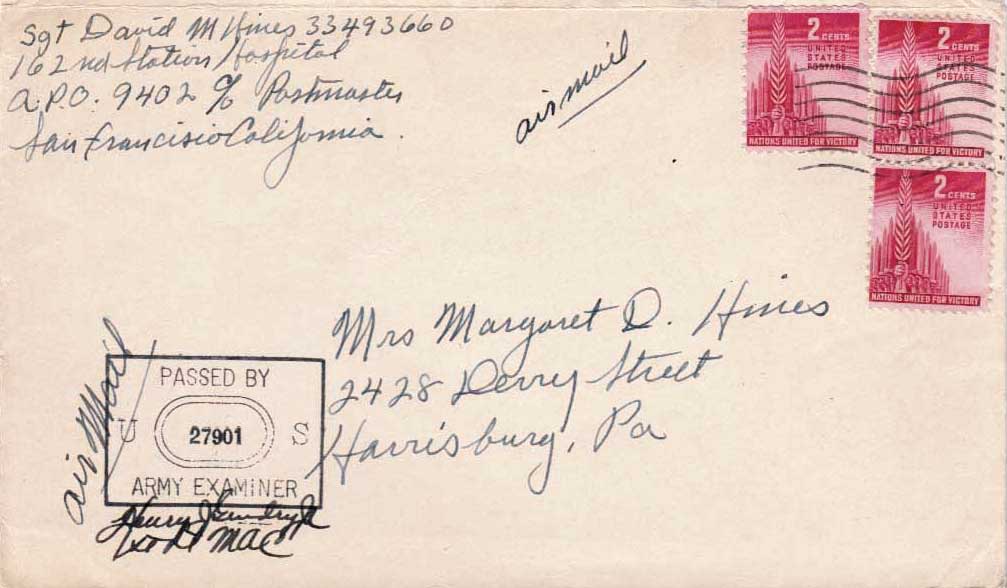 Sgt David M Hines 33493660
162nd Station Hospital
A.P.O. 9402 c/o Postmaster
San Francisio California.
air mail
2 CENTS
UNITED
STATES
POSTAGE
NATIONS UNITED FOR VICTORY
2 CENTS
UNITED
STATES
POSTAGE
NATIONS UNITED FOR VICTORY
2 CENTS
UNITED
STATES
POSTAGE
NATIONS UNITED FOR VICTORY
Mrs Margaret D. Hines
2428 Derry Street
Harrisburg, Pa
air Mail
PASSED BY
U 27901 S
ARMY EXAMINER
Henry Jr
1st Lt MAC